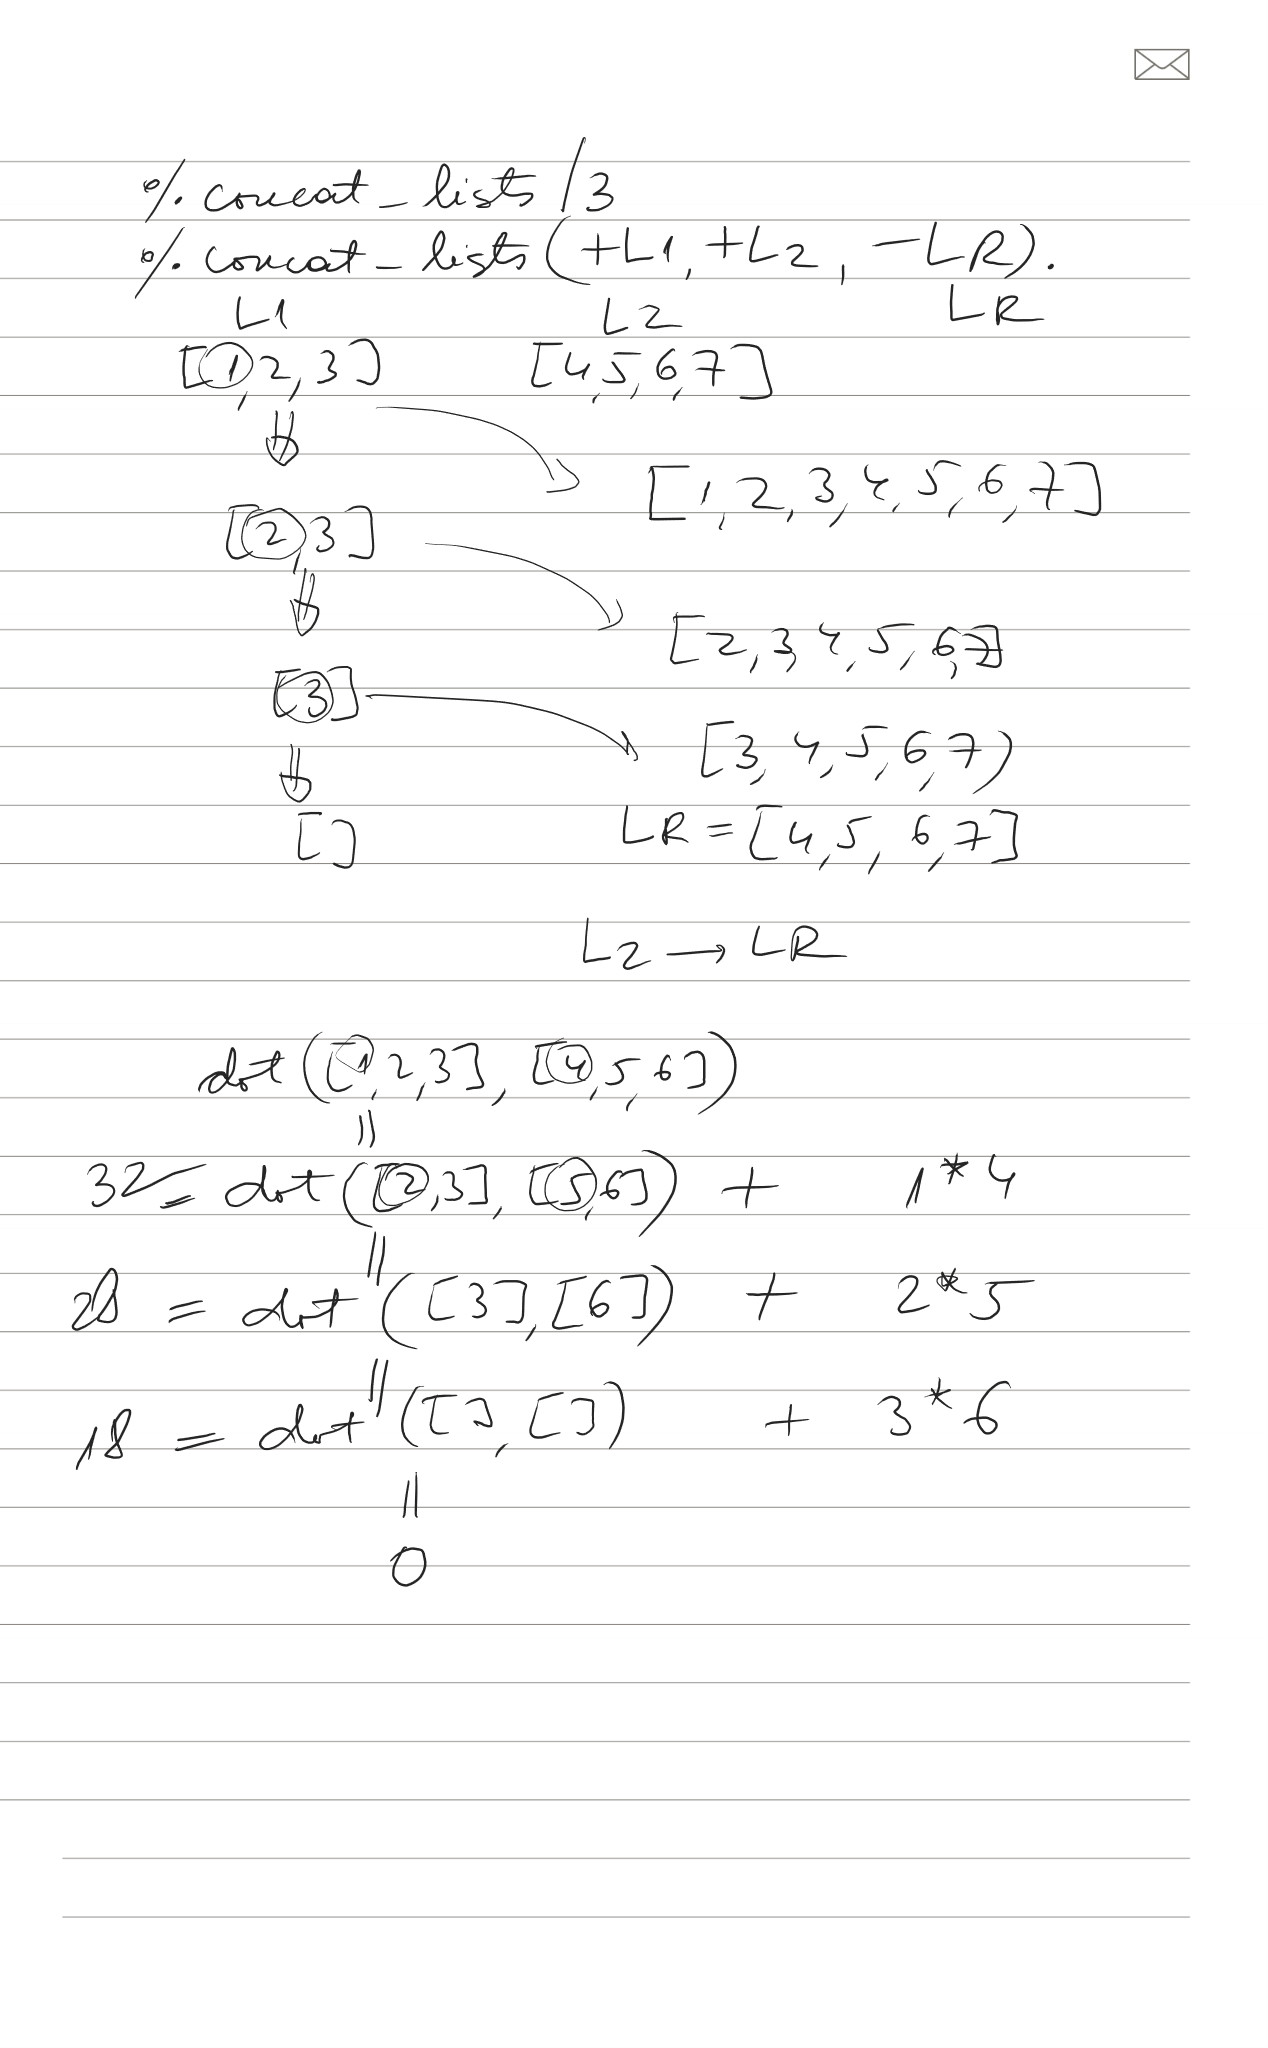 % concat_lists /3
% concat_lists (+L1, +L2, -LR).
L1 L2 LR
[1,2,3] [4,5,6,7]
[1,2,3,4,5,6,7]
[2,3]
[2,3,4,5,6,7]
[3]
[3,4,5,6,7)
[] LR = [4,5,6,7]
L2 → LR
dot ([1,2,3], [4,5,6])
||
32 = dot ([2,3], [5,6]) + 1*4
||
28 = dot ([3],[6]) + 2*5
||
18 = dot ([], []) + 3*6
||
0